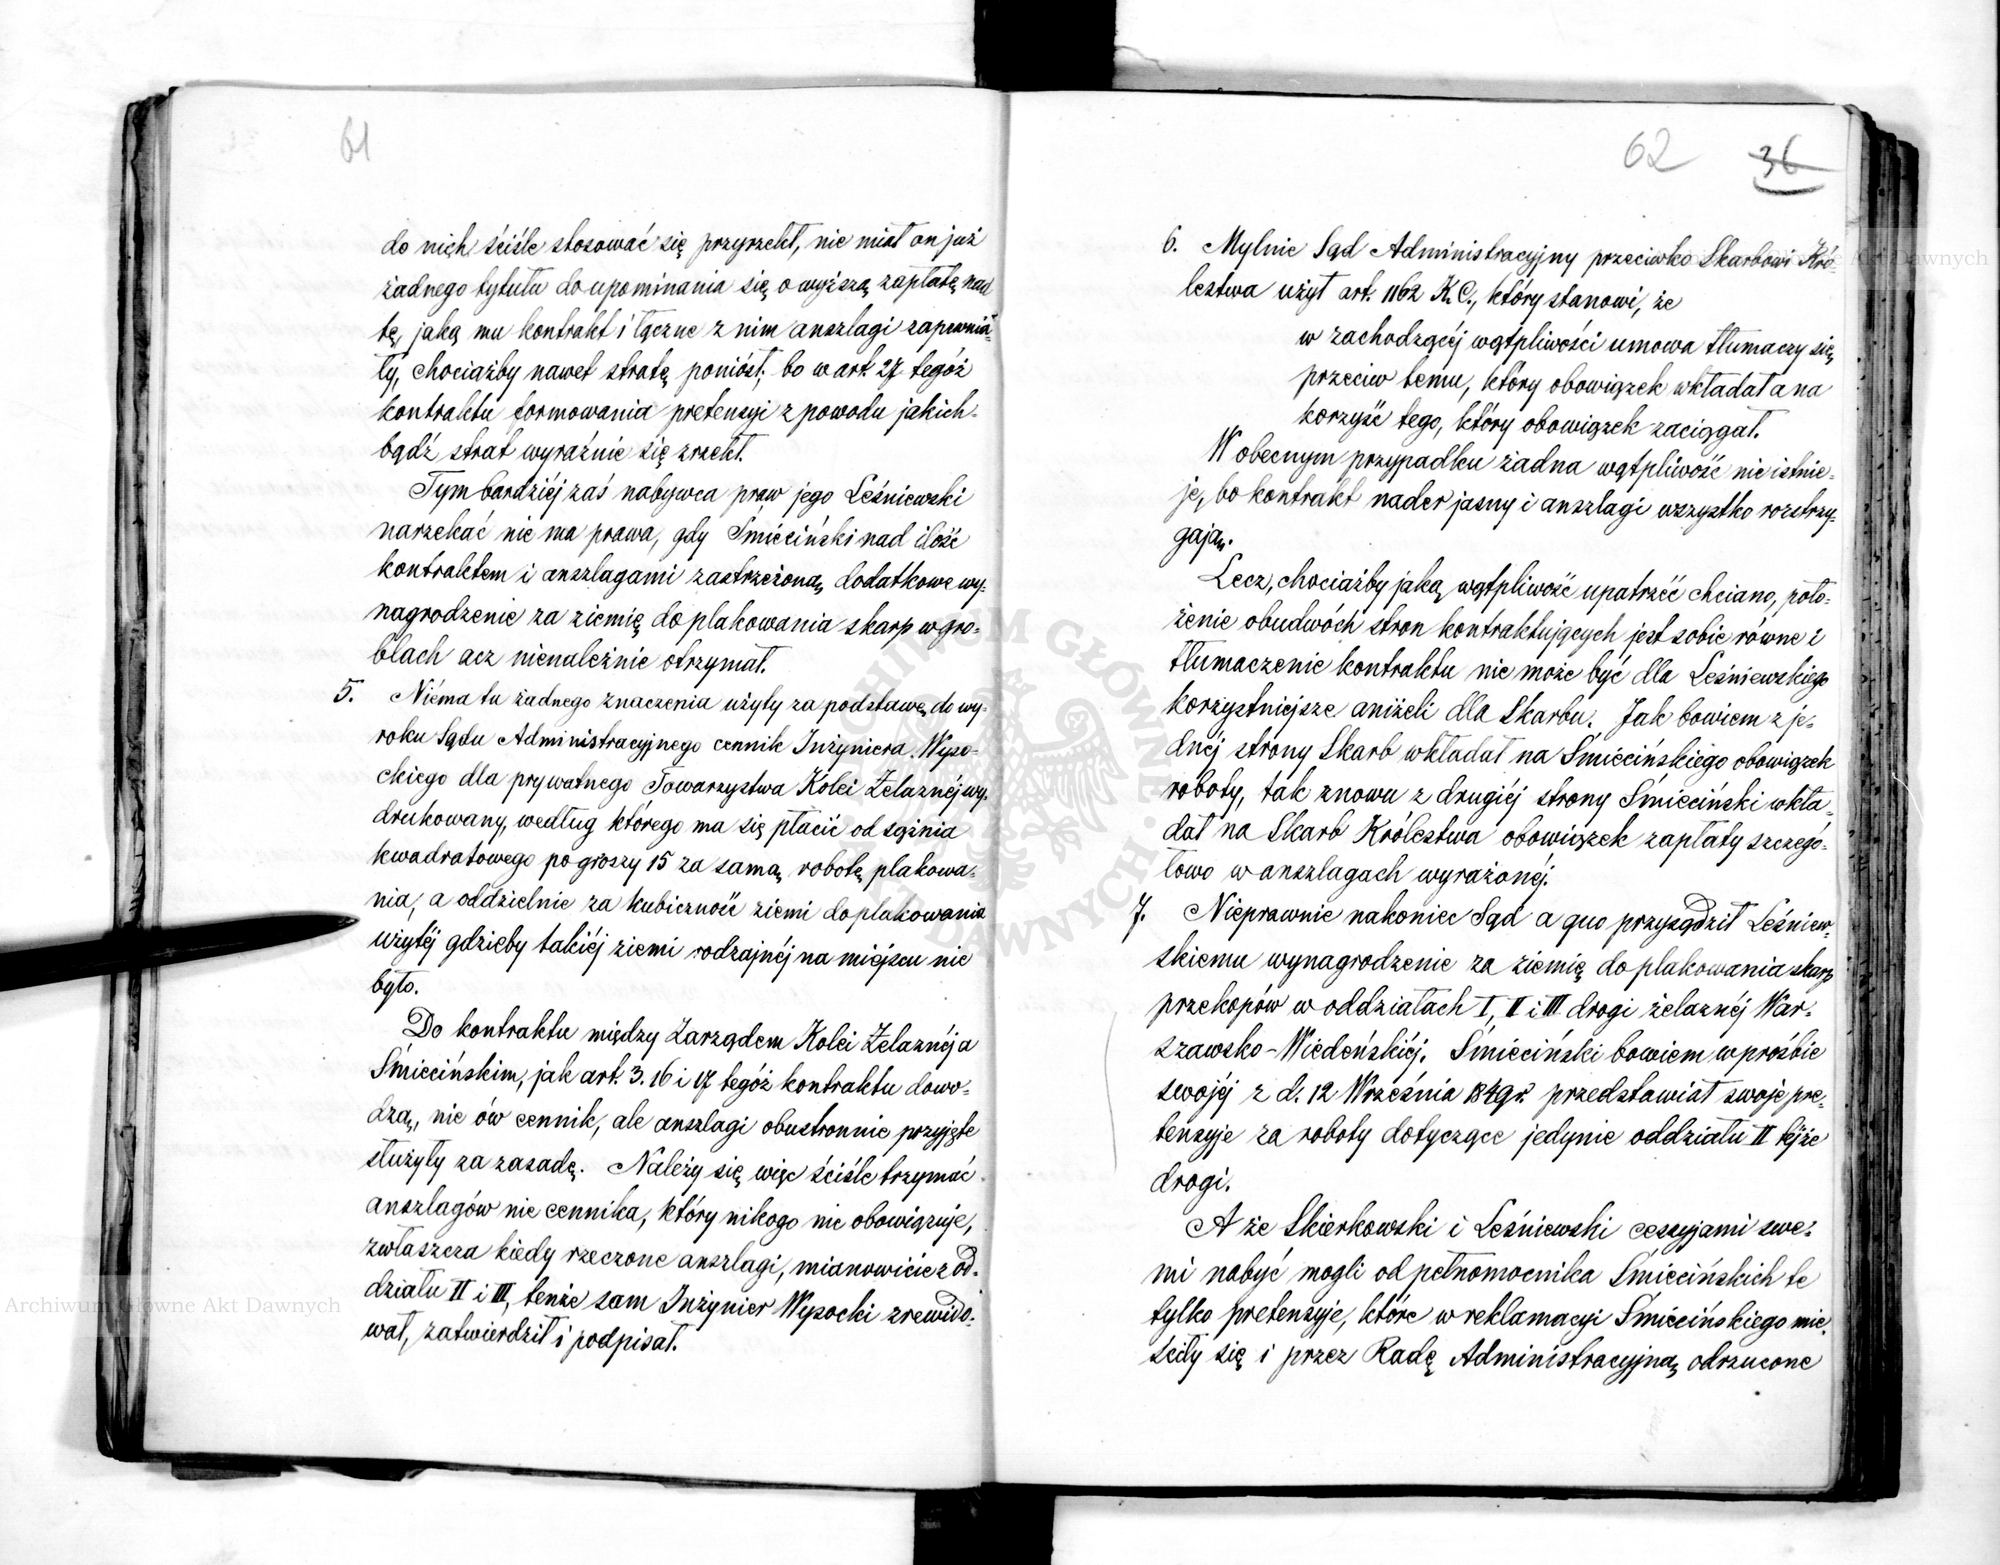 61
do nich ściśle stosować się przyrzekł, nie miał on już
żadnego tytułu do upominania się o wyższą zapłatę nad
tę, jaką mu kontrakt i łącznie z nim anszlagi zapewnia-
ły, chociażby nawet stratę poniósł; bo w art. 27 tegóż
kontraktu formowania pretensyi z powodu jakich-
bądź strat wyraźnie się zrzekł.
Tym bardziéj zaś nabywca praw jego Leśniewski
narzekać nie ma prawa, gdy Śmieciński nad ilość
kontraktem i anszlagami zastrzeżoną, dodatkowe wy-
nagrodzenie za ziemię do plakowania skarp w gro-
blach acz nienależnie otrzymał.
5. Niéma tu żadnego znaczenia użyty za podstawę do wy-
roku Sądu Administracyjnego cennik Inżyniera Wyso-
ckiego dla prywatnego Towarzystwa Kolei Żelaznéj wy-
drukowany, według którego ma się płacić od sążnia
kwadratowego po groszy 15 za samą robotę plakowa-
nia, a oddzielnie za kubiczność ziemi do plakowania
użytéj gdzieby takiéj ziemi rodzajnéj na miéjscu nie
było.
Do kontraktu między Zarządem Kolei Żelaznéj a
Śmiecińskim, jak art. 3. 16 i 17 tegóż kontraktu dowo-
dzą, nie ów cennik, ale anszlagi obustronnie przyjęte
służyły za zasadę. Należy się więc ściśle trzymać
anszlagów nie cennika, który nikogo nie obowiązuje,
zwłaszcza kiedy rzeczone anszlagi, mianowicie z od-
działu II i III, tenże sam Inżynier Wysocki zrewido-
wał, zatwierdził i podpisał.
62 36
6. Mylnie Sąd Administracyjny przeciwko Skarbowi Kró-
lestwa użył art. 1162 K. C., który stanowi, że
w zachodzącéj wątpliwości umowa tłumaczy się
przeciw temu, który obowiązek wkładał a na
korzyść tego, który obowiązek zaciągał.
W obecnym przypadku żadna wątpliwość nie istnie-
je, bo kontrakt nader jasny i anszlagi wszystko rozstrzy-
gają.
Lecz, chociażby jaką wątpliwość upatrzéć chciano, poło-
żenie obudwóch stron kontraktujących jest sobie równe i
tłumaczenie kontraktu nie może być dla Leśniewskiego
korzystniejsze aniżeli dla Skarbu. Jak bowiem z je-
dnéj strony Skarb wkładał na Śmiecińskiego obowiązek
roboty, tak znowu z drugiéj strony Śmieciński wkła-
dał na Skarb Królestwa obowiązek zapłaty szczegó-
łowo w anszlagach wyrażonéj.
7. Nieprawnie nakoniec Sąd a quo przysądził Leśniew-
skiemu wynagrodzenie za ziemię do plakowania skarp
przekopów w oddziałach I, II i III drogi żelaznéj War-
szawsko-Wiedeńskiéj. Śmieciński bowiem w prośbie
swojéj z d. 12 Września 1849 r. przedstawiał swoje pre-
tensyje za roboty dotyczące jedynie oddziału II téjże
drogi.
A że Skierkowski i Leśniewski cessyjami swe-
mi nabyć mogli od pełnomocnika Śmiecińskich te
tylko pretensyje, które w reklamacyi Śmiecińskiego mie-
ściły się i przez Radę Administracyjną odrzucone
ARCHIWUM GŁÓWNE AKT DAWNYCH
Archiwum Główne Akt Dawnych
Archiwum Główne Akt Dawnych